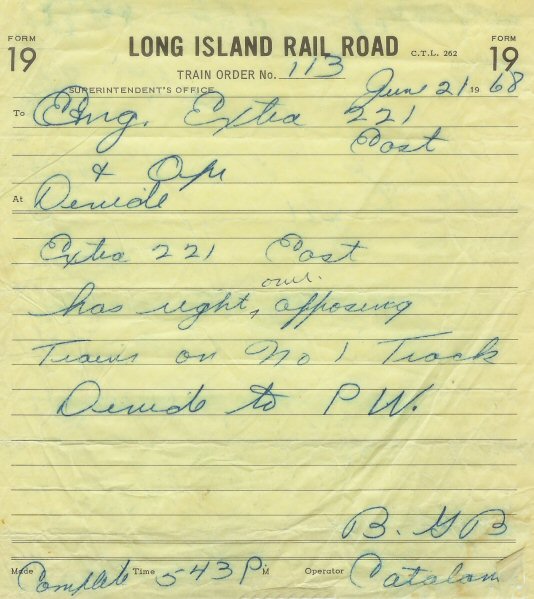 FORM 19 LONG ISLAND RAIL ROAD C.T.L. 262 FORM 19
TRAIN ORDER No. 113 June 21 1968
SUPERINTENDENT'S OFFICE
To Eng. Extra 221
East
& Opr
At Divide
Extra 221 East
over
has right, opposing
Trains on No 1 Track
Divide to P W.
B. G B
Made Complete Time 543 P M Operator Catalano